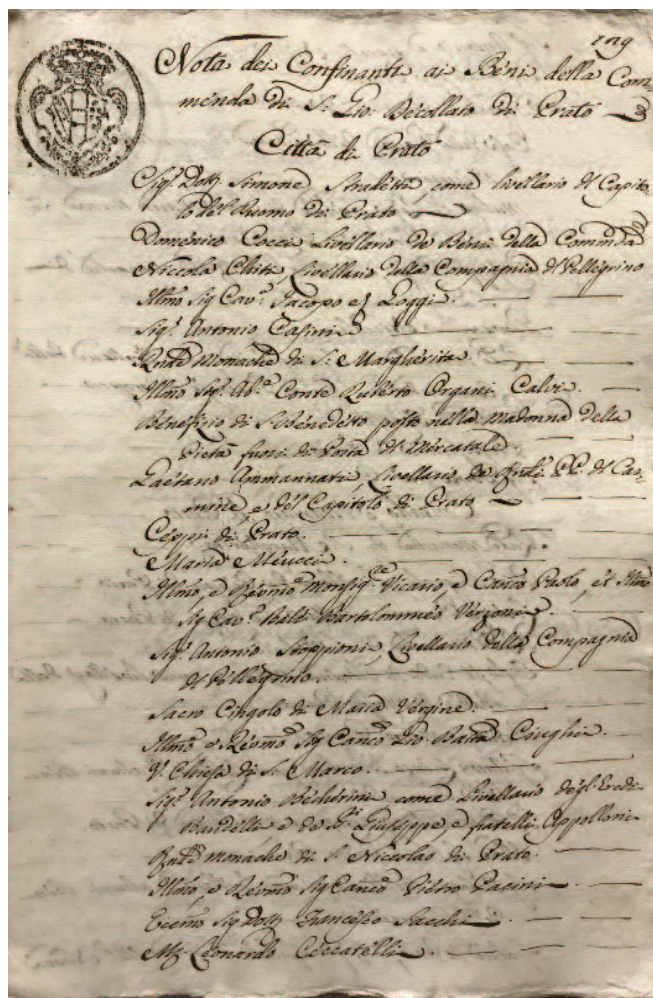 Nota dei Confinanti ai Beni della Com=
menda di S. Gio: Decollato di Prato
Città di Prato
Sig.r Dott.
Simone
come livellario del Capito
lo del Duomo di Prato
Domenico Cocci Livellario de Beni della Commda
Niccola Chiti, Livellario della Compagnia del Pellegrino
Illmo Sig Cav.r Jacopo
Sig.r Antonio Casini
Rnde Monache di S. Margherita
Illmo Sig.r Ab.e Conte Ruberto Organi Calvi.
Benefizio di S. Benedetto posto nella Madonna della
Pietà fuori di Porta al Mercatale.
Gaetano Ammannati, Livellario de PP. del Car=
mine, e del Capitolo di Prato
Ceppi di Prato.
Maria Meucci.
Illmo, e Revmo Monsig.re Vicario, e Canco Paolo, et Illmo
Sig Cav.r Bartolommeo Verzoni.
Sig.r Antonio Livellario della Compagnia
del Pellegrino.
Sacro Cingolo di Maria Vergine.
Illmo e Revmo Sig Canco Gio. Batta Ciughi.
V. Chiesa di S. Marco.
Sig.r Antonio Becherini come Livellario degl'Eredi
e de Giuseppe, e fratelli Appolloni
Rnde monache di S. Niccolao di Prato.
Illmo, e Revmo Sig Canco Pietro Pacini
Eccmo Sig Dott Francesco Sacchi
Leonardo Ceccatelli